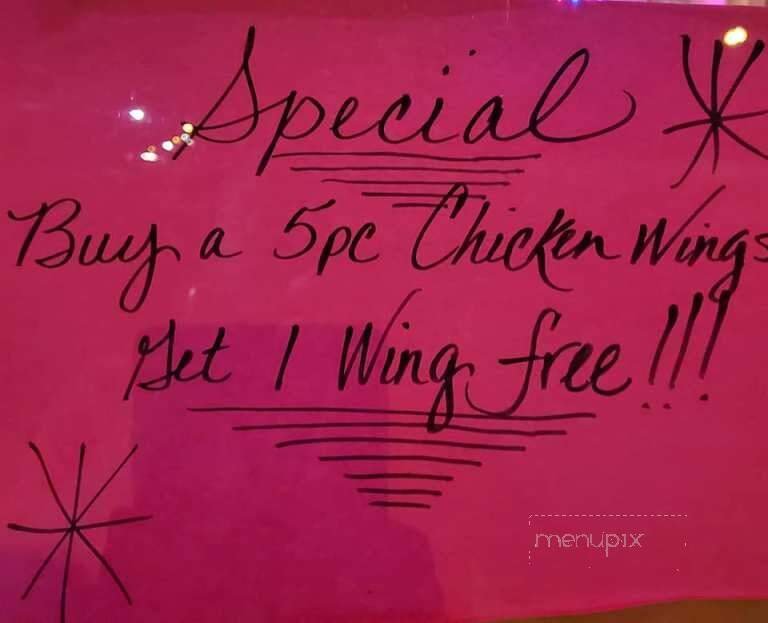 Special
Buy a 5pc Chicken Wings
Get 1 Wing free!!!
menupix